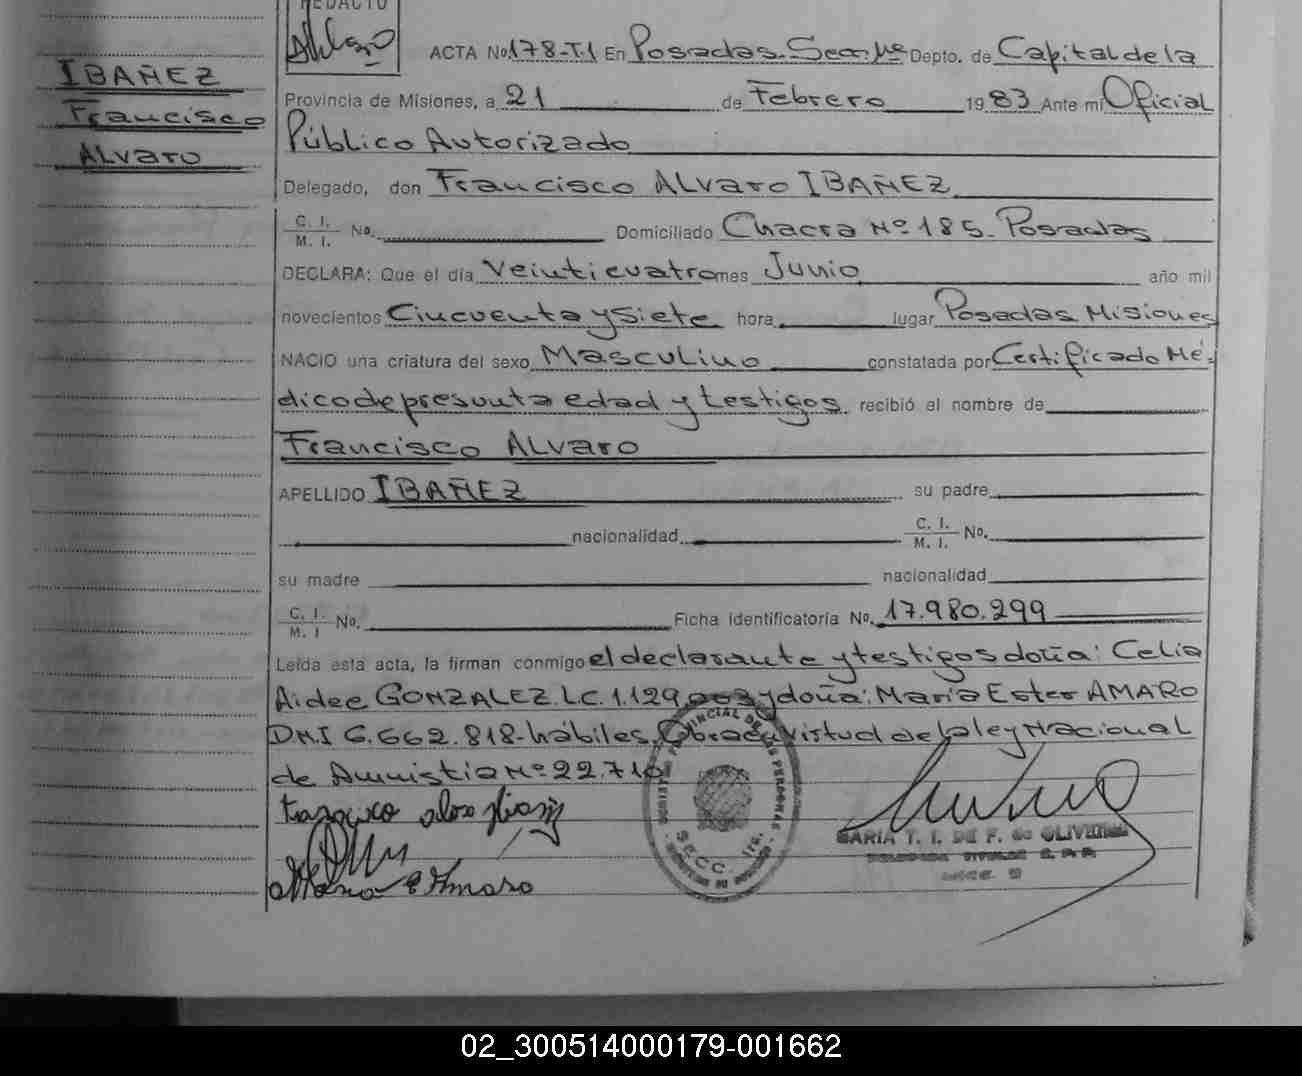 REDACTO
IBAÑEZ
Francisco
Alvaro
ACTA No. 178-T.1 En Posadas. Secc. 1ª Depto. de Capital de la
Provincia de Misiones, a 21 de Febrero 1983 Ante mi Oficial
Público Autorizado
Delegado, don Francisco Alvaro IBAÑEZ
C. I. / M. I. No. Domiciliado Chacra Nº 185. Posadas
DECLARA: Que el día Veinticuatro mes Junio año mil
novecientos Cincuenta y Siete hora lugar Posadas Misiones
NACIO una criatura del sexo Masculino constatada por Certificado Mé-
dico de presunta edad y testigos recibió el nombre de
Francisco Alvaro
APELLIDO IBAÑEZ su padre
nacionalidad C. I. / M. I. No.
su madre nacionalidad
C. I. / M. I No. Ficha identificatoria No. 17.980.299
Leída esta acta, la firman conmigo el declarante y testigos doña: Celia
Aidee GONZALEZ. L.C. 1.129.003 y doña: Maria Ester AMARO
DNI 6.662.818- hábiles. Obra en virtud de la ley Nacional
de Amnistia Nº 22.710
Maria E Amaro
MARIA T. I. DE F. de OLIVEIRA
SECC. 1ra.
02_300514000179-001662